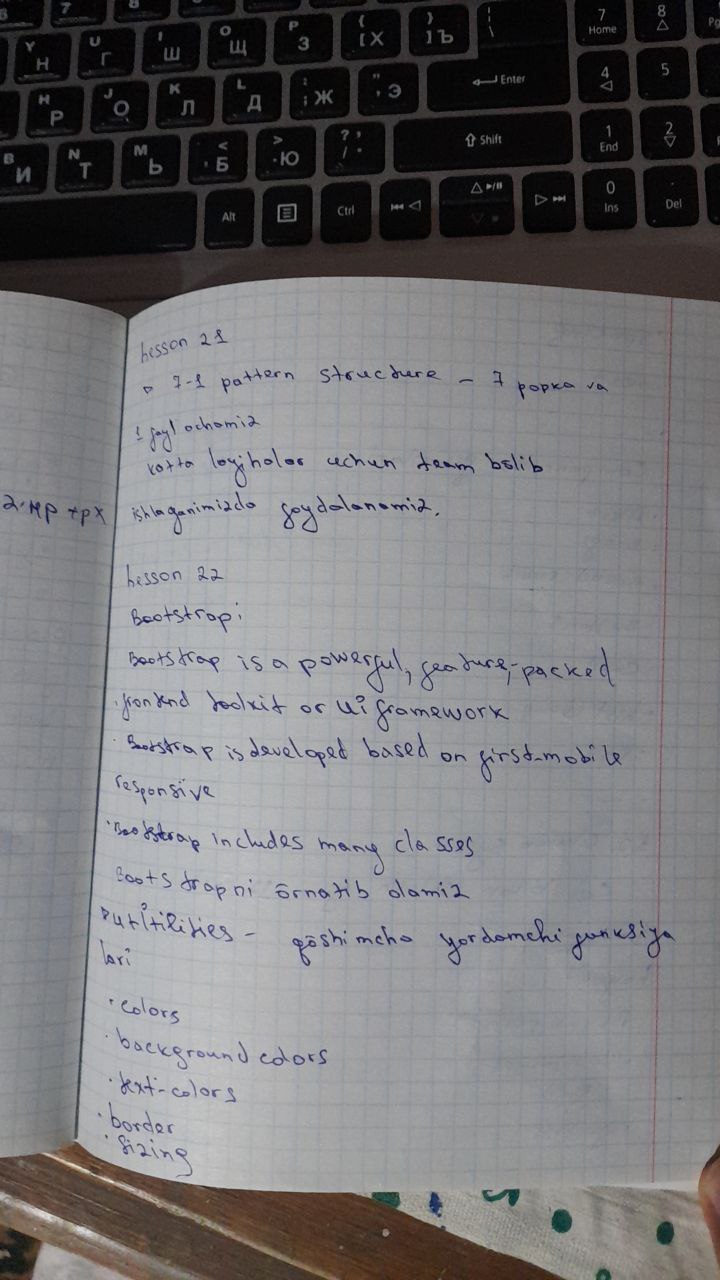 7
8
Y Н
U Г
I Ш
O Щ
P З
{ [ Х
} ] Ъ
| \
7 Home
8
H Р
J О
K Л
L Д
: ; Ж
" ' Э
Enter
4
5
В И
N Т
M Ь
< , Б
> . Ю
? / .
Shift
1 End
2
Alt
Ctrl
0 Ins
. Del
Lesson 21
7-1 pattern structure – 7 papka va
1 fayl ochamiz
katta loyihalar uchun team bõlib
ishlaganimizda foydalanamiz.
Lesson 22
Bootstrap:
Bootstrap is a powerful, feature-packed
frontend toolkit or ui framework
· Bootstrap is developed based on first-mobile
responsive
· Bootstrap includes many classes
Bootstrapni õrnatib olamiz
utitilities – qõshimcha yordamchi funksiya
lari
· colors
· background colors
· text-colors
· border
· sizing